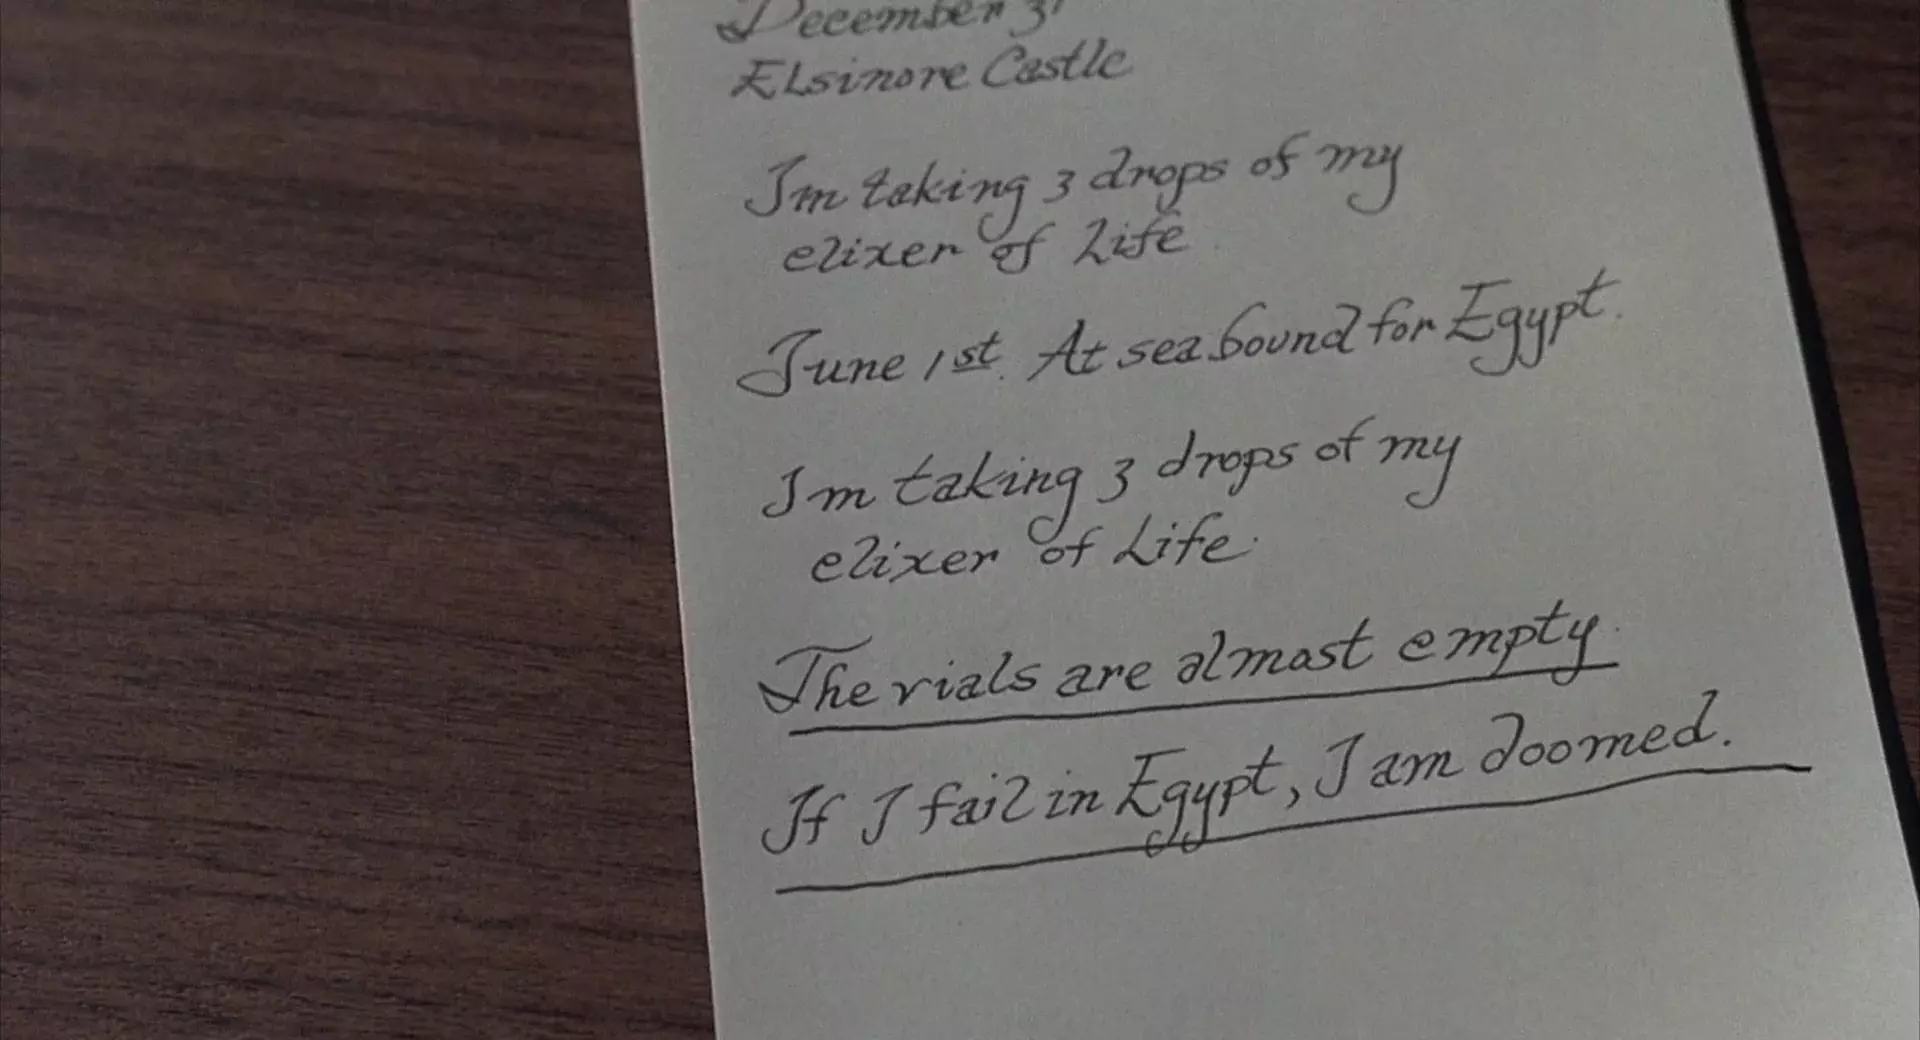 December 31
Elsinore Castle
Im taking 3 drops of my
elixer of Life
June 1st. At sea bound for Egypt.
Im taking 3 drops of my
elixer of Life.
The vials are almost empty.
If I fail in Egypt, I am doomed.